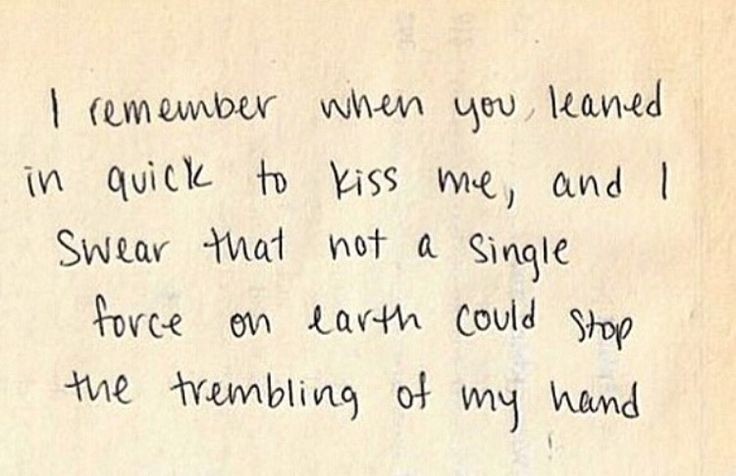 I remember when you leaned
in quick to kiss me, and I
swear that not a single
force on earth could stop
the trembling of my hand